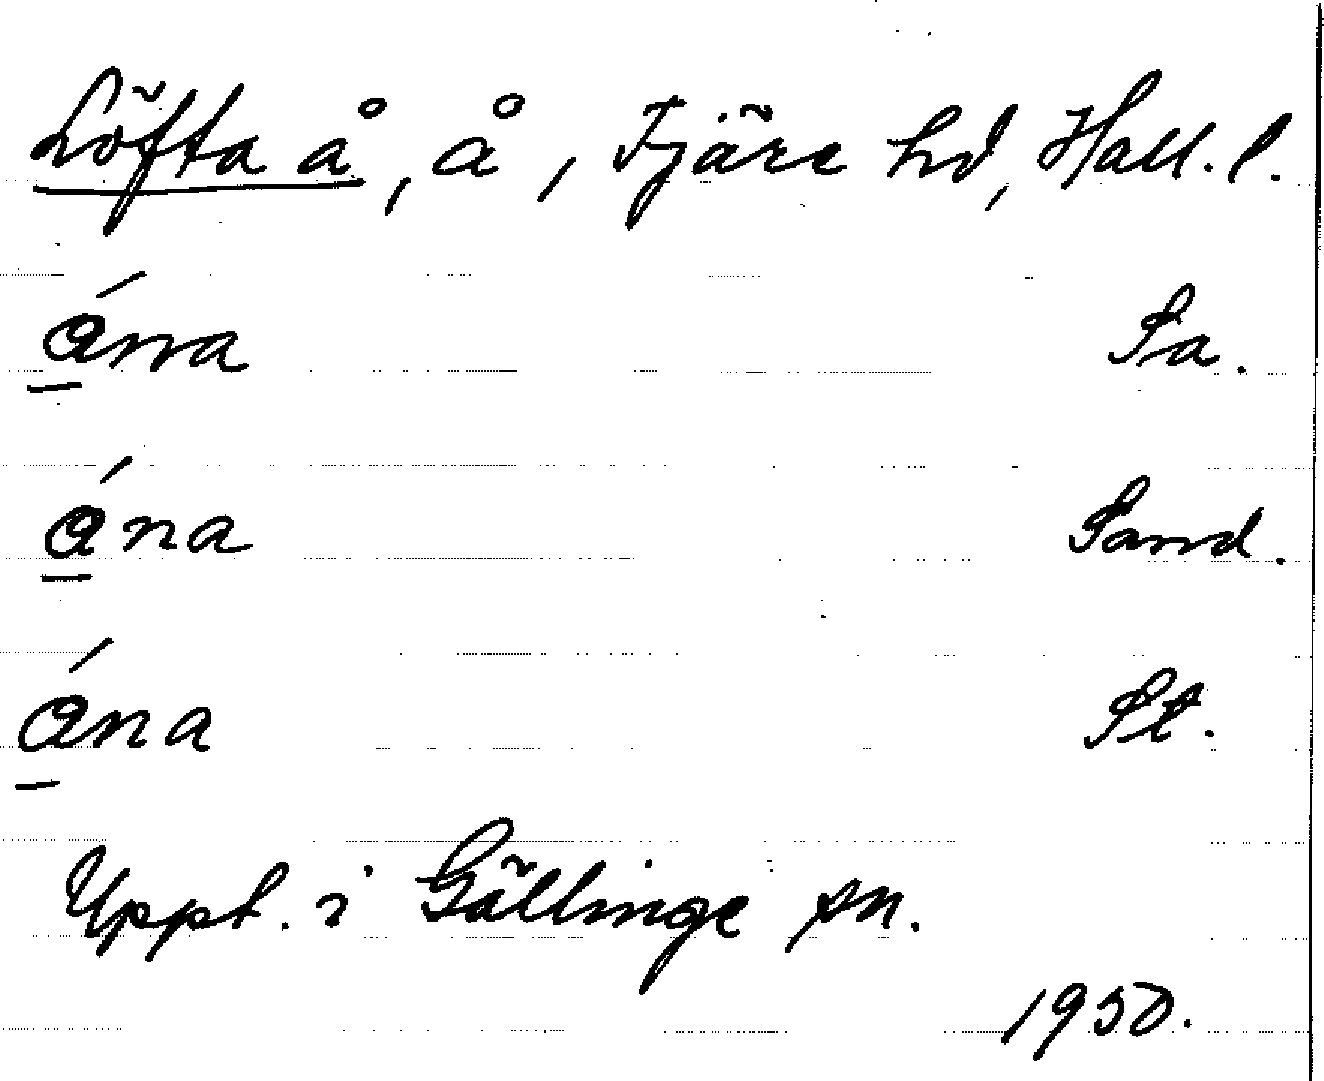 Löfta å, å, Fjäre hd, Hall. l.
ána Sa.
ána Sand.
ána St.
Uppt. i Gällinge sn.
1950.